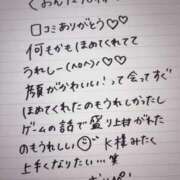 口コミありがとう♡♡
何もかもほめてくれてて
うれしー(^o^)
顔がかわいい!って会ってすぐ
ほめてくれたのもうれしかったし
ゲームの話で盛り上がれた
のもうれしい☺ K様みたく
上手くなりたい…笑